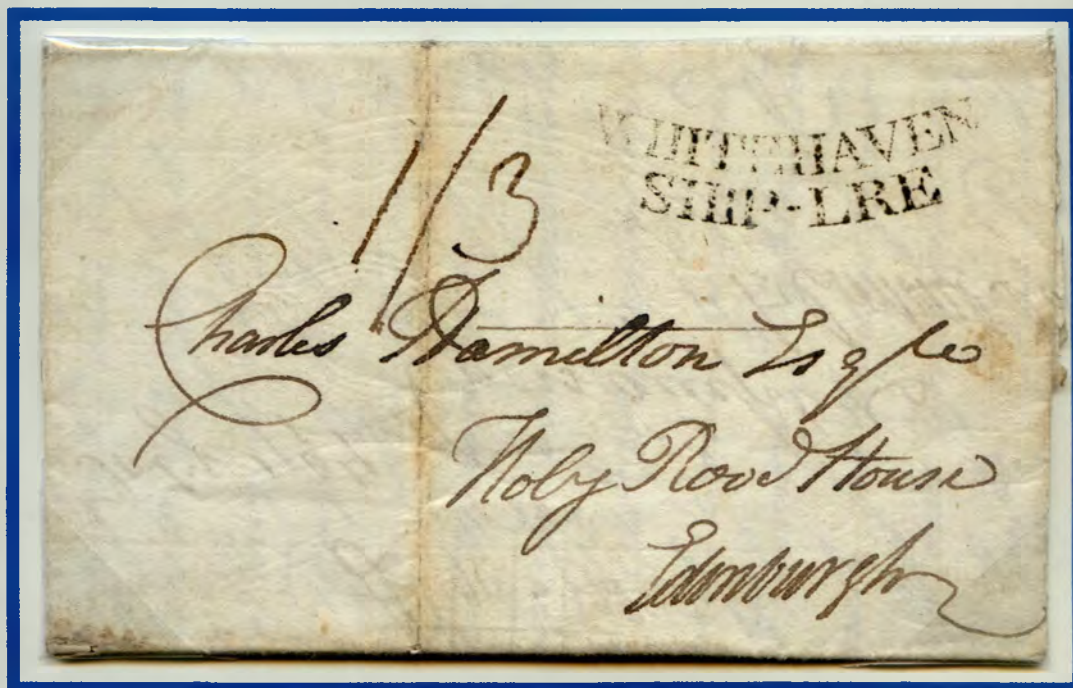 WHITEHAVEN
SHIP-LRE
1/3
Charles Hamilton Esqre
Holy Rood House
Edinburgh